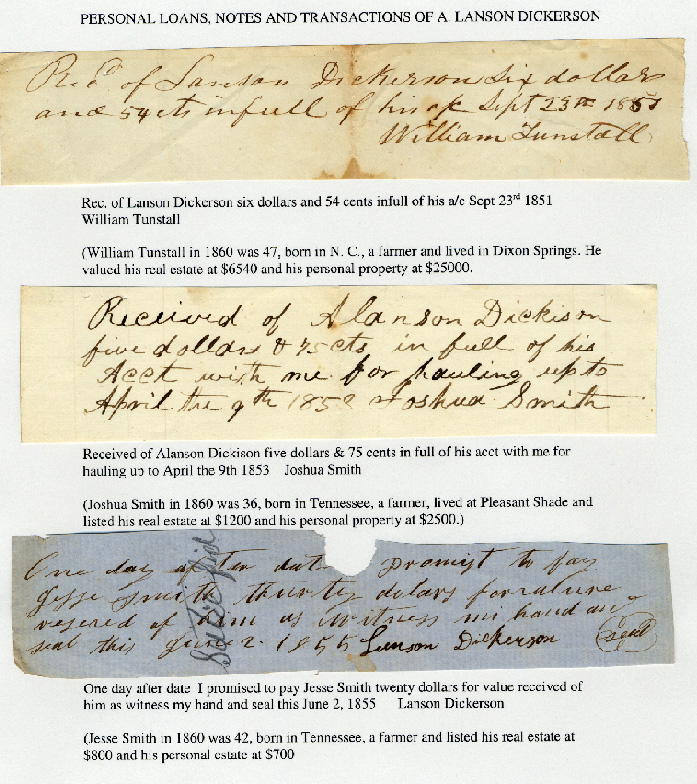 PERSONAL LOANS, NOTES AND TRANSACTIONS OF A. LANSON DICKERSON
Rec'd of Lanson Dickerson Six dollars
and 54 cts infull of his a/c Sept 23rd 1851
William Tunstall
Rec. of Lanson Dickerson six dollars and 54 cents infull of his a/c Sept 23rd 1851
William Tunstall
(William Tunstall in 1860 was 47, born in N. C., a farmer and lived in Dixon Springs. He
valued his real estate at $6540 and his personal property at $25000.
Received of Alanson Dickison
five dollars & 75 cts in full of his
Acct with me for hauling up to
April the 9th Joshua Smith
Received of Alanson Dickison five dollars & 75 cents in full of his acct with me for
hauling up to April the 9th 1853 Joshua Smith
(Joshua Smith in 1860 was 36, born in Tennessee, a farmer, lived at Pleasant Shade and
listed his real estate at $1200 and his personal property at $2500.)
One day after date promist to pay
Jesse Smith dolars
of him as witness mi hand and
seal this June 2 1855 Lanson Dickerson Seal
One day after date I promised to pay Jesse Smith twenty dollars for value received of
him as witness my hand and seal this June 2, 1855 Lanson Dickerson
(Jesse Smith in 1860 was 42, born in Tennessee, a farmer and listed his real estate at
$800 and his personal estate at $700